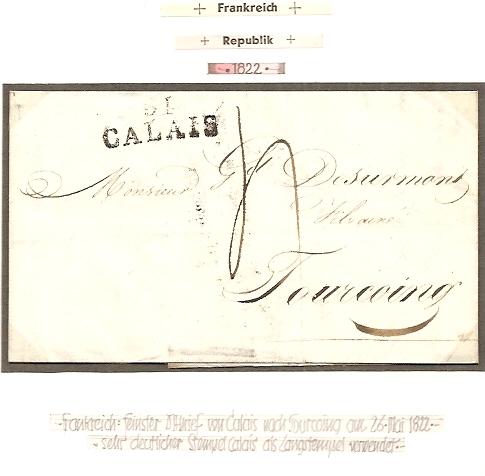 + Frankreich +
+ Republik +
• 1822 •
61
CALAIS
Monsieur G F Desurmont
Tourcoing
Frankreich: feinster D'Brief von Calais nach Tourcoing am 26. Mai 1822
sehr deutlicher Stempel Calais als Langstempel verwendet